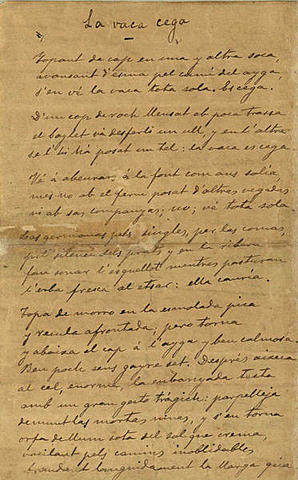 La vaca cega
Topant de cap en una y altra soca,
avansant d'esma pel camí del aygua,
s'en vé la vaca tota sola. Es cega.
D'un cop de roch llensat ab poca trassa
el baylet va desferli un ull, y en l'altre
se l'hi há posat un tel: la vaca es cega
Vé á abeurar á la font com ans solía,
mes no ab el ferm posat d'altres vegades
ni ab sas companyas; no; vé tota sola
Sas germanas pels singles, per las comas,
pel silenci dels prats y en la ribera
fan sonar l'esquellot mentres pasturan
l'erba fresca al atsar: ella cauría.
Topa de morro en la esmolada pica
y recula afrontada, pero torna
y abaixa el cap á l'aygua y beu calmosa.
Beu poch, sens gayre set. Després aixeca
al cel, enorme, la embanyada testa
amb un gran gesto trágich: parpelleja
demunt las mortas ninas, y s'en torna
orfa de llum sota del sol que crema,
vacilant pels camins inoblidables
brandant llánguidament la llarga cua